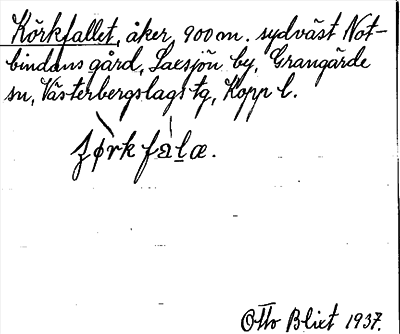 Körkfallet, åker, 900 m. sydväst Not-
bindans gård, Laesjön by, Grangärde
sn, Västerbergslags tg, Kopp l.
Otto Blixt 1937.